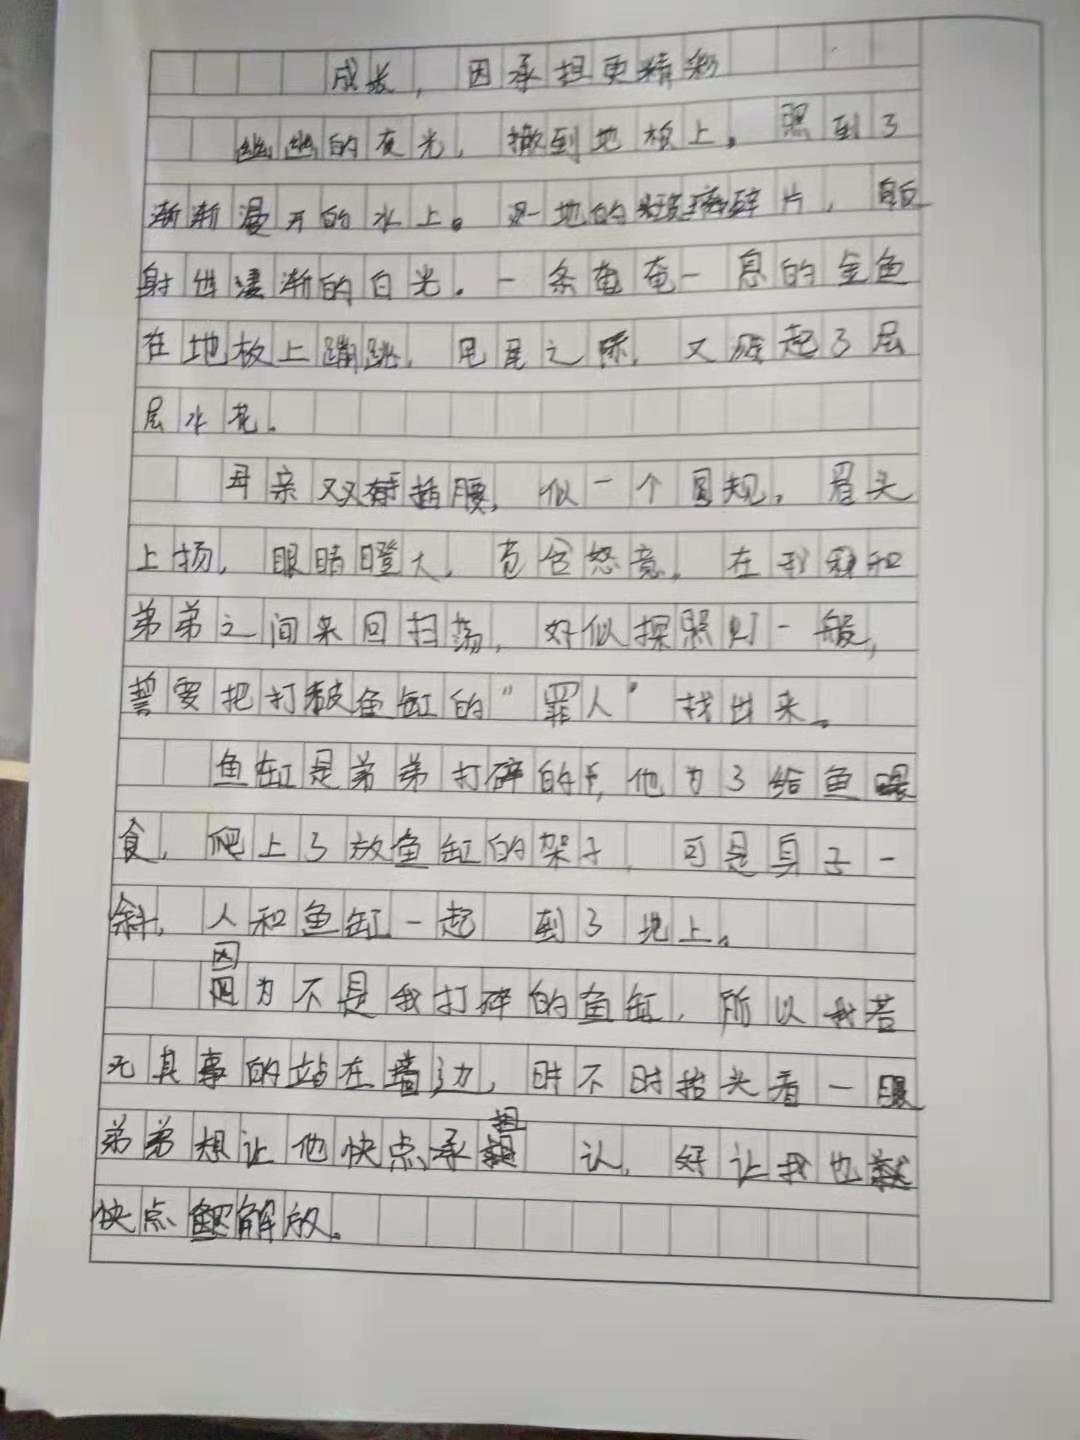 成长，因承担更精彩
幽幽的夜光，撒到地板上。照到了
渐渐漫开的水上。又一地的玻璃碎片，
射进渐渐的白光。一条奄奄一息的金鱼
在地板上蹦跳，甩尾之际，又溅起了层
层水花。
母亲双手插腰，似一个圆规，眉头
上扬，眼睛瞪大，苞含怒意，在我和
弟弟之间来回扫荡，好似探照灯一般，
誓要把打破鱼缸的"罪人"找出来。
鱼缸是弟弟打碎的，他为了给鱼喂
食，爬上了放鱼缸的架子，可是身子一
斜，人和鱼缸一起 到了地上。
因为不是我打碎的鱼缸，所以我若
无其事的站在墙边，时不时抬头看一眼
弟弟想让他快点承担 认，好让我也
快点解放。